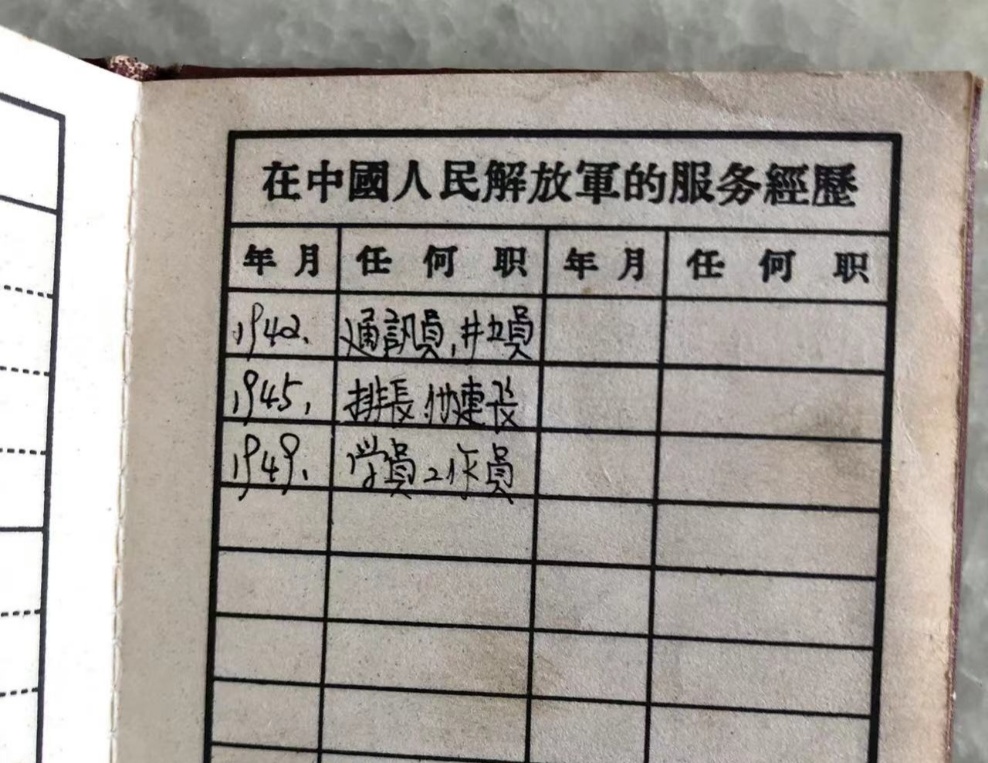 在中國人民解放軍的服务經歷
年月 任何职 年月 任何职
1942. 通訊員,
1945. 排長 連长
1949. 学員 工作員